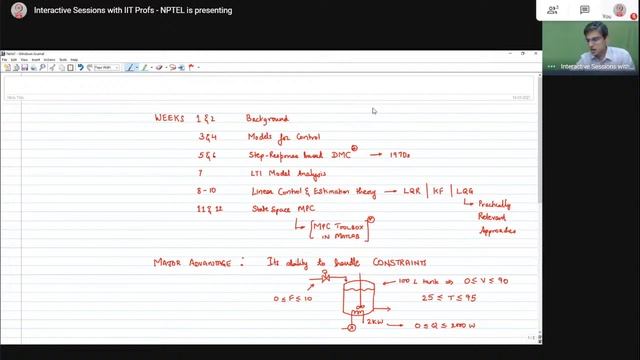 Interactive Sessions with IIT Profs - NPTEL is presenting
2
You
Interactive Sessions with...
Page Width
WEEKS 1 & 2 Background
3 & 4 Models for Control
5 & 6 Step-Response based DMC → 1970s
7 LTI Model Analysis
8 - 10 Linear Control & Estimation theory → LQR | KF | LQG
↳ Practically
Relevant
Approaches
11 & 12 State Space MPC
↳ [MPC TOOLBOX
IN MATLAB]
MAJOR ADVANTAGE : Its ability to handle CONSTRAINTS
100 L tank ⇒ 0 ≤ V ≤ 90
0 ≤ F ≤ 10
25 ≤ T ≤ 95
2kW → 0 ≤ Q ≤ 2000 W